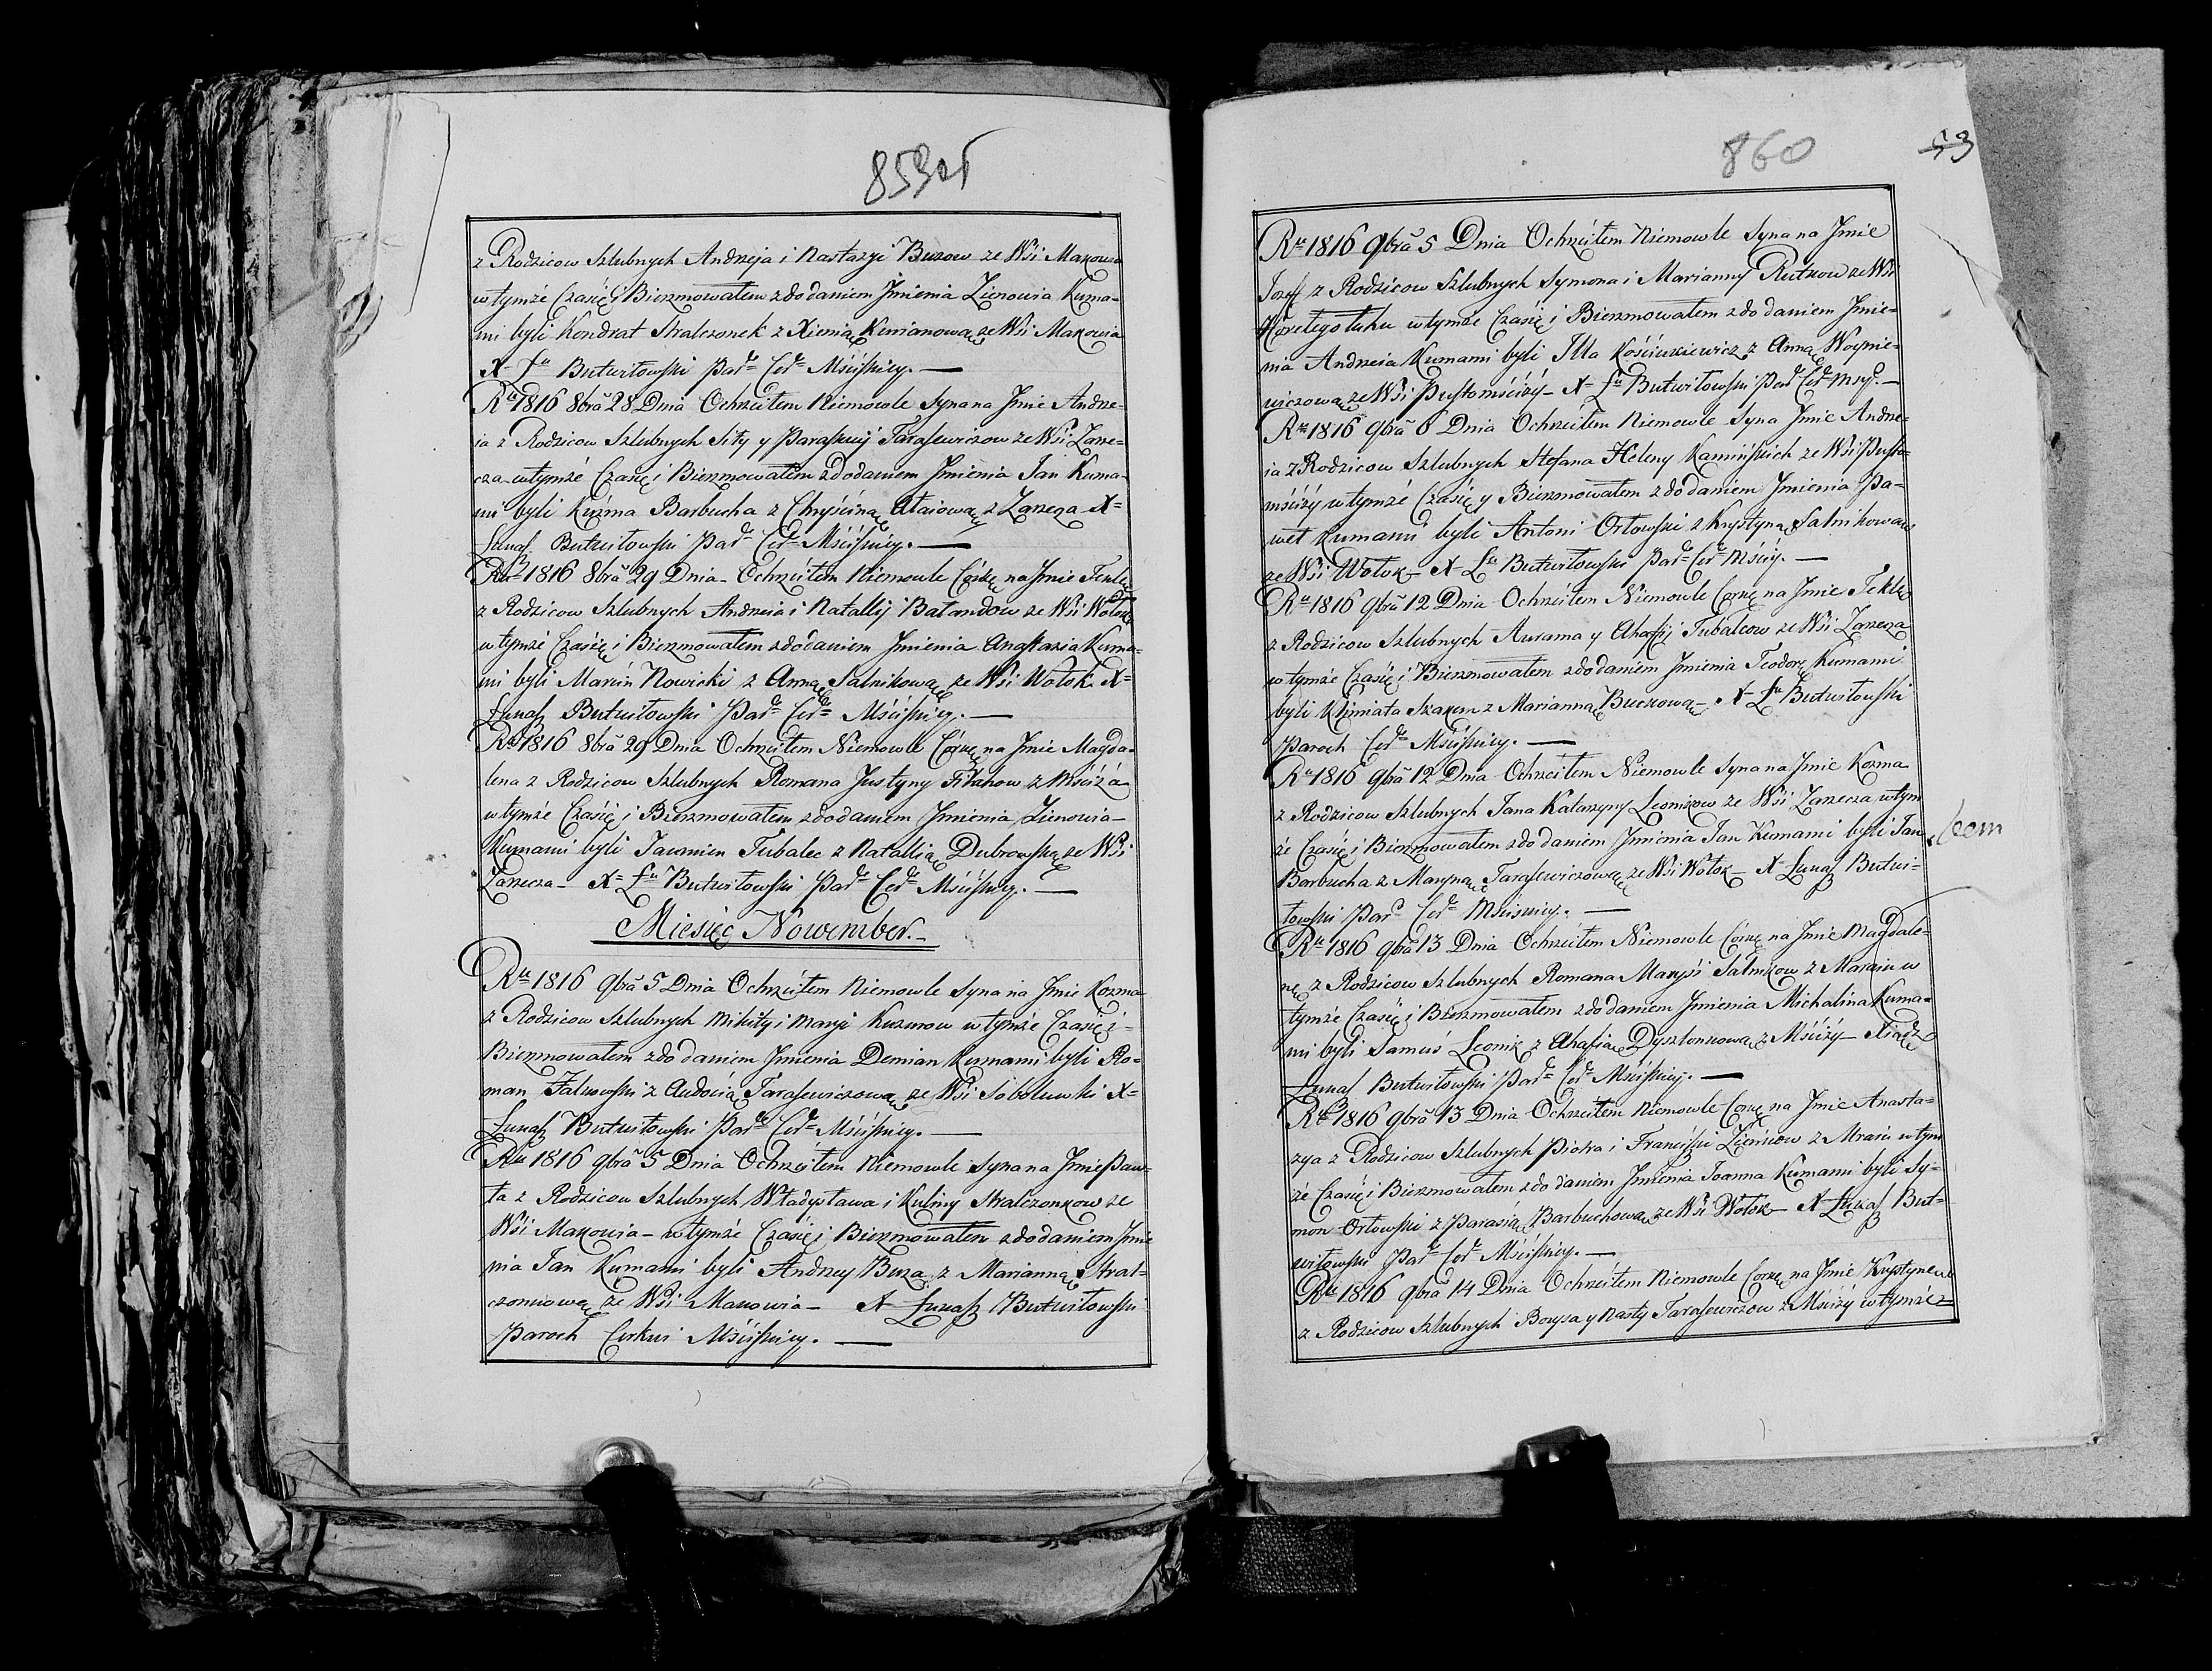 859об
z Rodzicow Szlubnych Andreja i Nastazyi Buzow ze Wśi Makowia
w tymże Czasię i Bierzmowałem z dodaniem Jmienia Zienowia Kuma-
mi byli Kondrat Stralczonek z Xienią Kunianową ze Wśi Makowia
X Łu Butwiłowski Par: Cer: Mśćiskiey. —
Ru 1816 8brá 28 Dnia Ochrzćiłem Niemowle Syna na Jmie Andre-
ia z Rodzicow Szlubnych Siły y Paraskwij Tarasewiczow ze Wśi Zarze-
cza w tymże Czasię i Bierzmowałem z dodaniem Jmienia Jan Kuma-
mi byli Kuźma Barbucha z Chryśćiną Ałaiową z Zarzeza X=
Łukasz Butwiłowski Par: Cer: Mśćiskiey. —
Ru 1816 8brá 29 Dnia Ochrzćiłem Niemowle Córkę na Jmie Teklę
z Rodzicow Szlubnych Andreia i Natallij Bałandow ze Wśi Wołok
w tymże Czasię i Bierzmowałem z dodaniem Jmienia Anastazia Kuma-
mi byli Marćin Nowicki z Anną Salnikową ze Wśi Wołok X=
Łukasz Butwiłowski Par: Cer: Mśćiskiey. —
Ru 1816 8brá 29 Dnia Ochrzćiłem Niemowle Córkę na Jmie Magda-
lena z Rodzicow Szlubnych Romana Justyny z Mśćiża
w tymże Czasię i Bierzmowałem z dodaniem Jmienia Zienowia
Kumami byli Jaurmien Tubalec z Natallią Dubrowską ze Wśi
Zarzecza — X= Łu Butwiłowski Par: Cer: Mśćiskiey. —
Miesięc Nowember. —
Ru 1816 9brá 5 Dnia Ochrzćiłem Niemowle Syna na Jmie Kozma
z Rodzicow Szlubnych Mikity i Maryi Kuzurow w tymże Czasię i
Bierzmowałem z dodaniem Jmienia Demian Kumami byli Ro-
man Falkowski z Audocią Tarasewiczową ze Wśi Sobolewki X=
Łukasz Butwiłowski Par: Cer: Mśćiskiey. —
Ru 1816 9brá 5 Dnia Ochrzćiłem Niemowle Syna na Jmie Paw-
ła z Rodzicow Szlubnych Władysława i Kuliny Stralczonkow ze
Wśi Makowia — w tymże Czasię i Bierzmowałem z dodaniem Jmie
nia Jan Kumami byli Andrey Buza z Marianną Stral-
czonkową ze Wśi Makowia — X Łukasz Butwiłowski
Paroch Cerkwi Mśćiskiey. —
860
53
Ru 1816 9brá 5 Dnia Ochrzćiłem Niemowle Syna na Jmie
Jozef z Rodzicow Szlubnych Symona i Marianny Rutkow ze Wśi
w tymże Czasię i Bierzmowałem z dodaniem Jmie-
nia Andreia Kumami byli Jlla Kośćiukiewicz z Anną Woynie-
wiczową ze Wśi Pustomśćiży — X Łu Butwiłowski Par: Cer: Mscy. —
Ru 1816 9brá 6 Dnia Ochrzćiłem Niemowle Syna Jmie Andre-
ia z Rodzicow Szlubnych Stefana Heleny Kamińskich ze Wśi Pusto-
mśćiży w tymże Czasię y Bierzmowałem z dodaniem Jmienia Pa-
weł Kumami byli Antoni Orłowski z Krystyną Salnikową
ze Wśi Wołok — X Łu Butwiłowski Par: Cer: Mśćiy. —
Ru 1816 9brá 12 Dnia Ochrzćiłem Niemowle Corkę na Jmie Teklę
z Rodzicow Szlubnych Aurama y Ahafij Tubalcow ze Wśi Zarzeza
w tymże Czasię i Bierzmowałem z dodaniem Jmienia Teodorę Kumami
byli Klimiata Skakun z Marianną Buczkową — X Łu Butwiłowski
Paroch Cer: Mśćiskiey. —
Ru 1816 9brá 12 Dnia Ochrzćiłem Niemowle Syna na Jmie Kozma
z Rodzicow Szlubnych Jana Katarzyny Leonikow ze Wśi Zarzecza w tym
że Czasię i Bierzmowałem z dodaniem Jmienia Jan Kumami byli Jan
Barbucha z Maryną Tarasewiczową ze Wśi Wołok — X Łukasz Butwi-
łowski Par: Cer: Mśćiskiey. —
Ru 1816 9brá 13 Dnia Ochrzćiłem Niemowle Córkę na Jmie Magdale-
nę z Rodzicow Szlubnych Romana Maryśi Salnikow z Marain w
tymże Czasię i Bierzmowałem z dodaniem Jmienia Michalina Kuma-
mi byli Samuś Leonik z Ahafią Dyszlonkową z Mśćiży — Xiądz
Łukasz Butwiłowski Par: Cer: Mśćiskiey. —
Ru 1816 9brá 13 Dnia Ochrzćiłem Niemowle Corkę na Jmie Anasta-
zya z Rodzicow Szlubnych Piotra i Franciszki z w tym
że Czasię i Bierzmowałem z dodaniem Jmienia Joanna Kumami byli Sy-
mon Orłowski z Parasią Barbuchową ze Wśi Wołok — X Łukasz But-
wiłowski Par: Cer: Mśćiskiey. —
Ru 1816 9brá 14 Dnia Ochrzćiłem Niemowle Corkę na Jmie Krystynę
z Rodzicow Szlubnych Borysa y Nasty Tarasewiczow z Mśćiży w tymże=